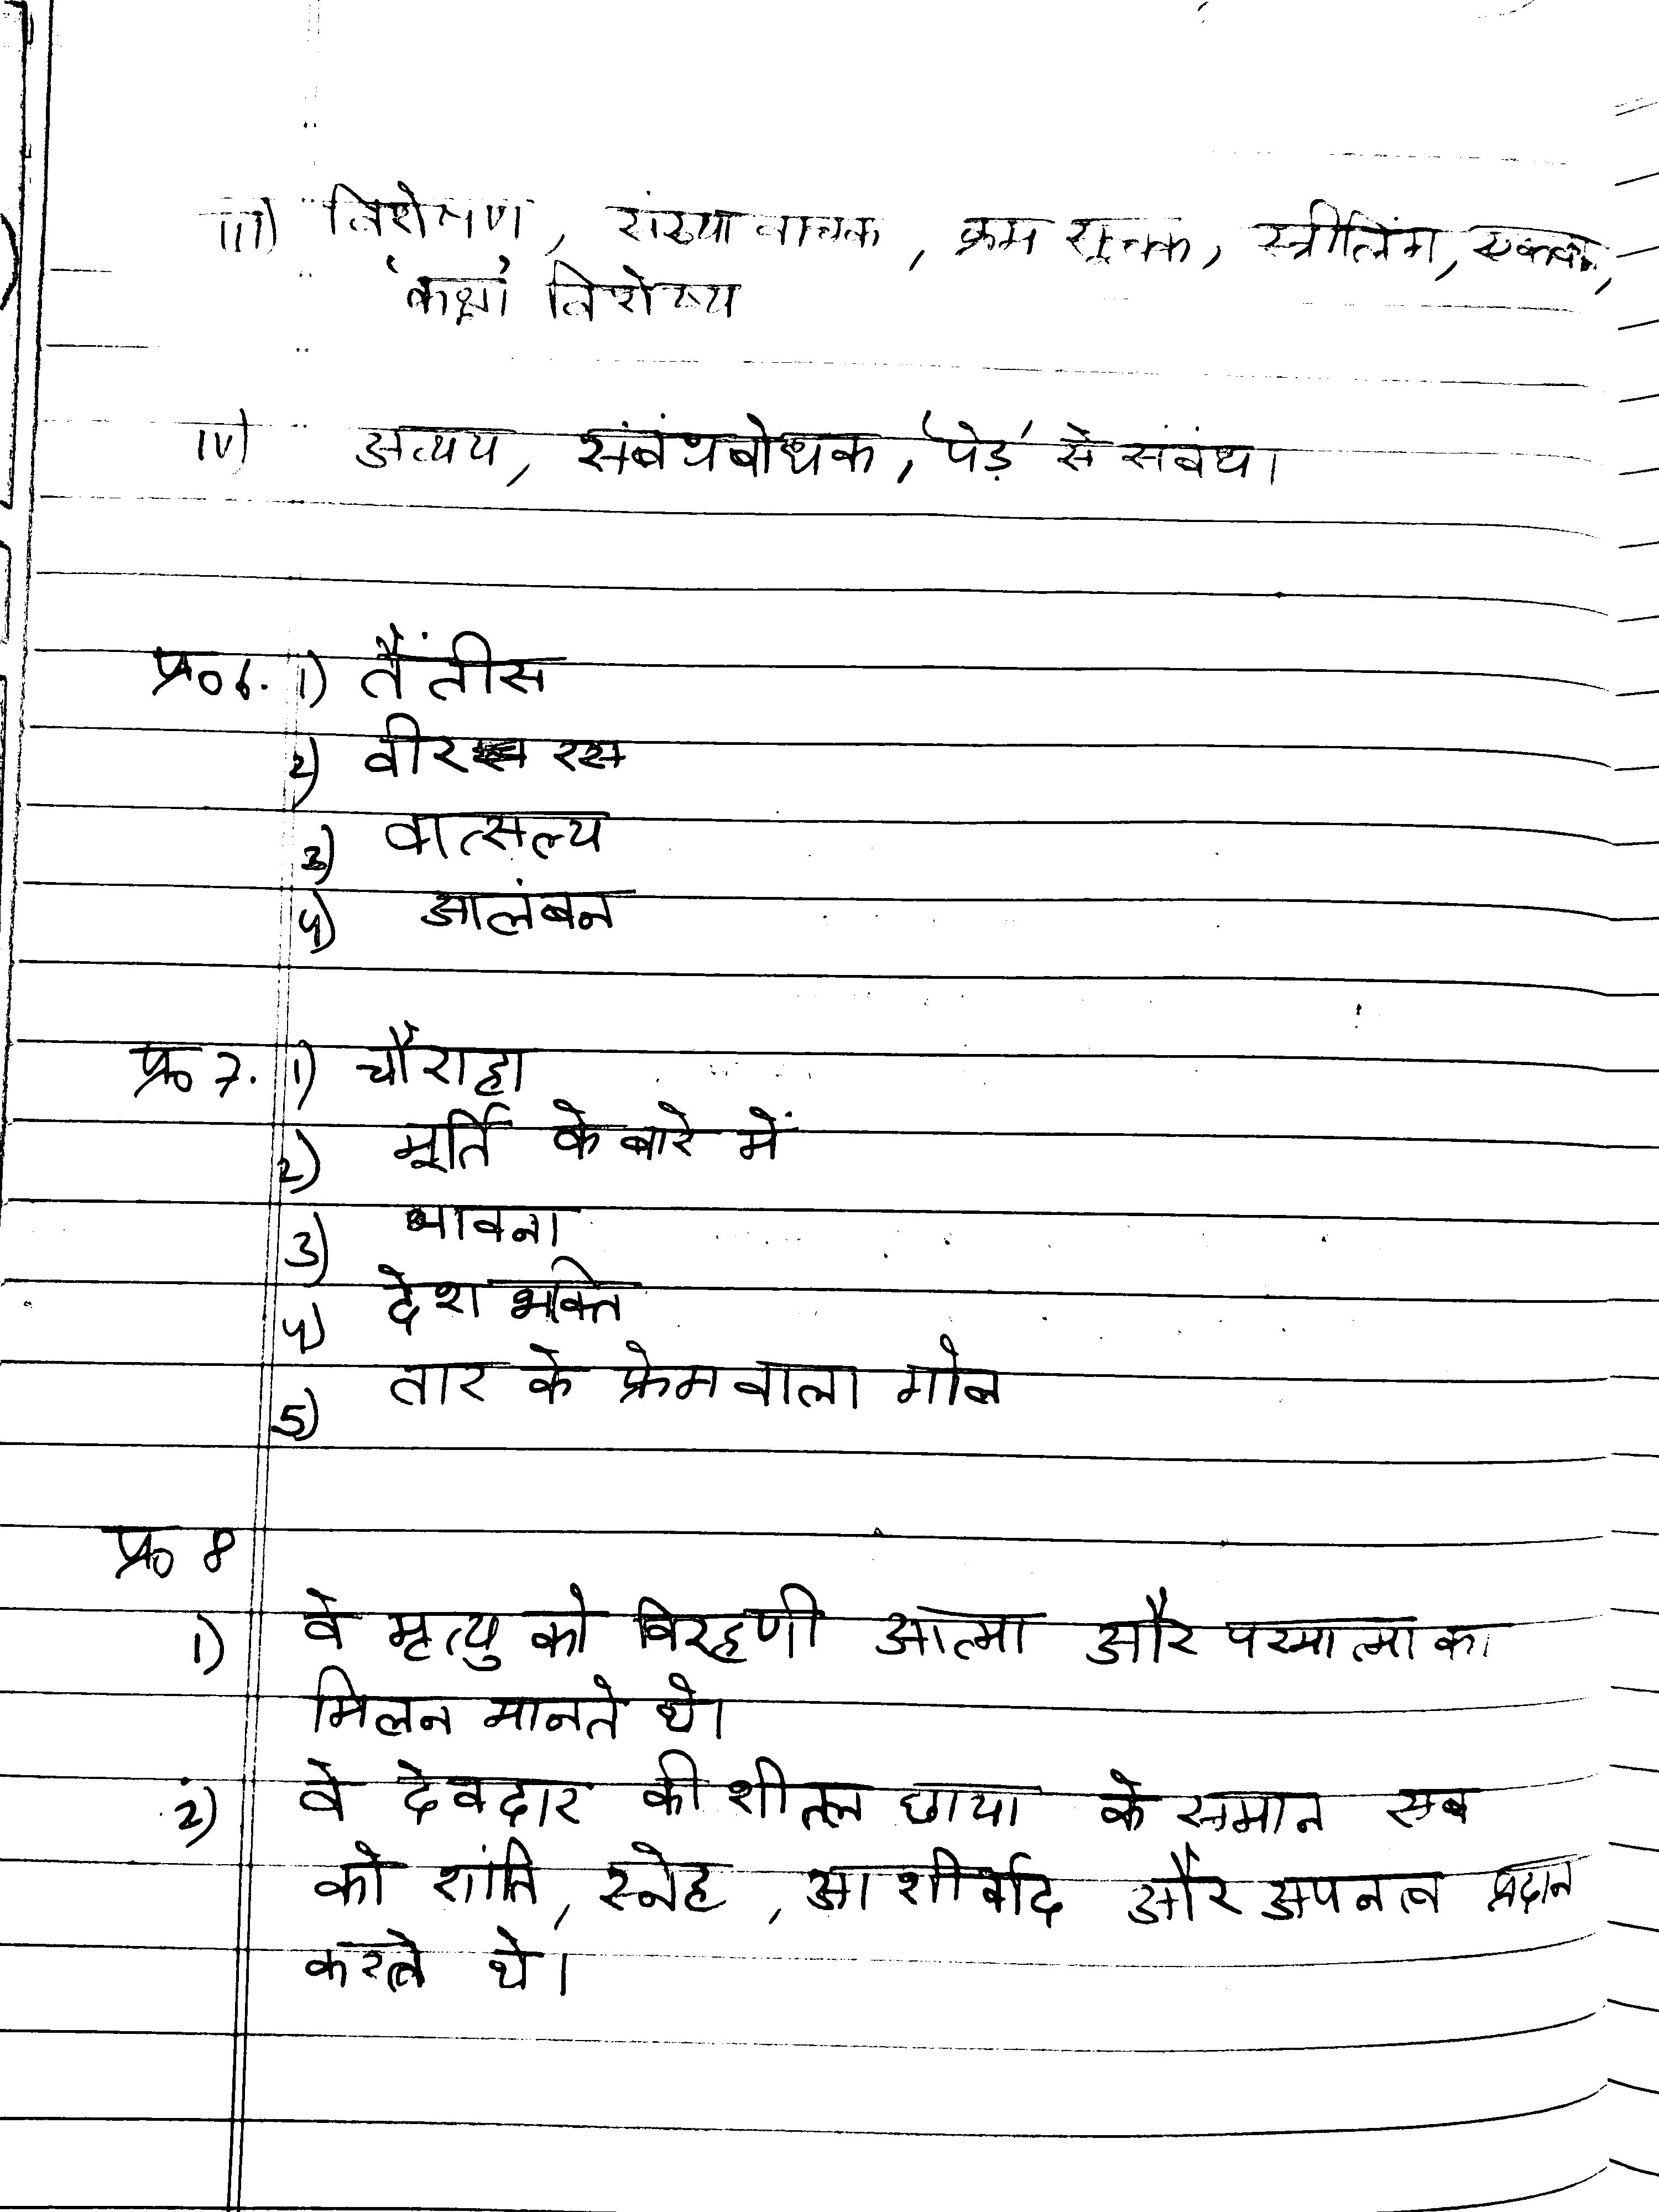 iii) विशेषण, संख्यावाचक, क्रम सूचक, स्त्रीलिंग, एकव॰,
'कक्षा' विशेष्य
iv) अव्यय, संबंधबोधक, 'पेड़' से संबंध।
प्र०6. 1) तैंतीस
2) वीर रस
3) वात्सल्य
4) आलंबन
प्र० 7. 1) चौराहा
2) मूर्ति के बारे में
3) भावना
4) देश भक्ति
5) तार के फ्रेमवाला गोल
प्र० 8
1) वे मृत्यु को विरहणी आत्मा और परमात्मा का
मिलन मानते थे।
2) वे देवदार की शीतल छाया के समान सब
को शांति, स्नेह, आशीर्वाद और अपनत्व प्रदान
करते थे।